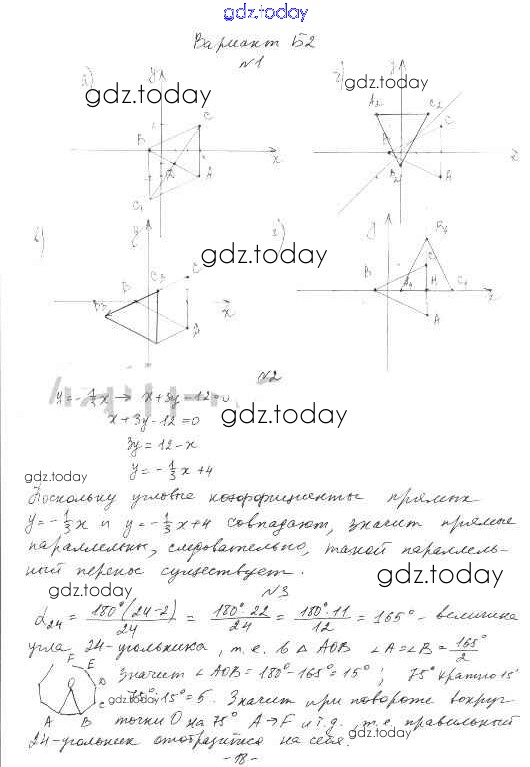 gdz.today
Вариант Б2
№1
а) y gdz.today
C
B
D
A
x
C₁
б) gdz.today
A₂ C₂
C
B
B₂
A
x
в) y gdz.today
B C₃ C
B₃
A
x
г) y
B₄
C
B A₄ H C₄
A
x
№2
y = -1/3x → x+3y-12=0
x+3y-12=0 gdz.today
3y = 12-x
y = -1/3x+4
gdz.today
Поскольку угловые коэффициенты прямых
y=-1/3x и y=-1/3x+4 совпадают, значит прямые
параллельны, следовательно, такой параллель-
ный перенос существует. gdz.today
gdz.today №3
α₂₄ = 180°(24-2)/24 = 180°·22/24 = 180°·11/12 = 165° - величина
угла 24-угольника, т.е. в △AOB ∠A=∠B= 165°/2
F E D C O A B
Значит ∠AOB=180°-165°=15°; 75° кратно 15°
gdz.today 75°:15°=5. Значит при повороте вокруг
точки O на 75° A→F и т.д., т.е. правильный
24-угольник отобразится на себя.
-18-